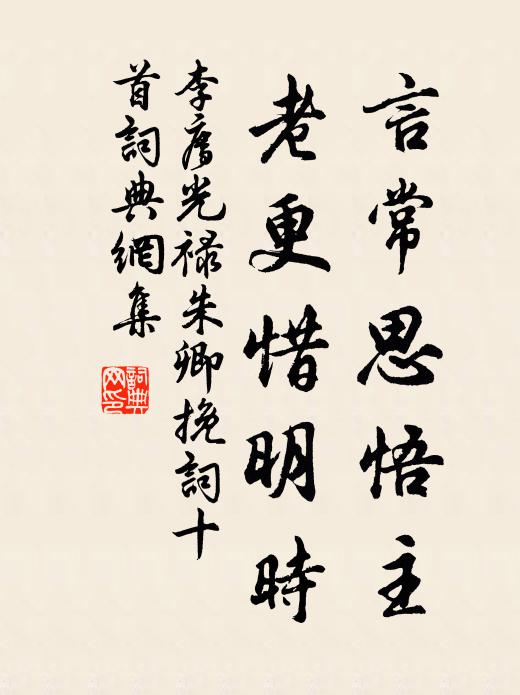 言常思悟主
老更惜明時
李唐光禄朱卿挽詞十
首詞典網集
詞典網印